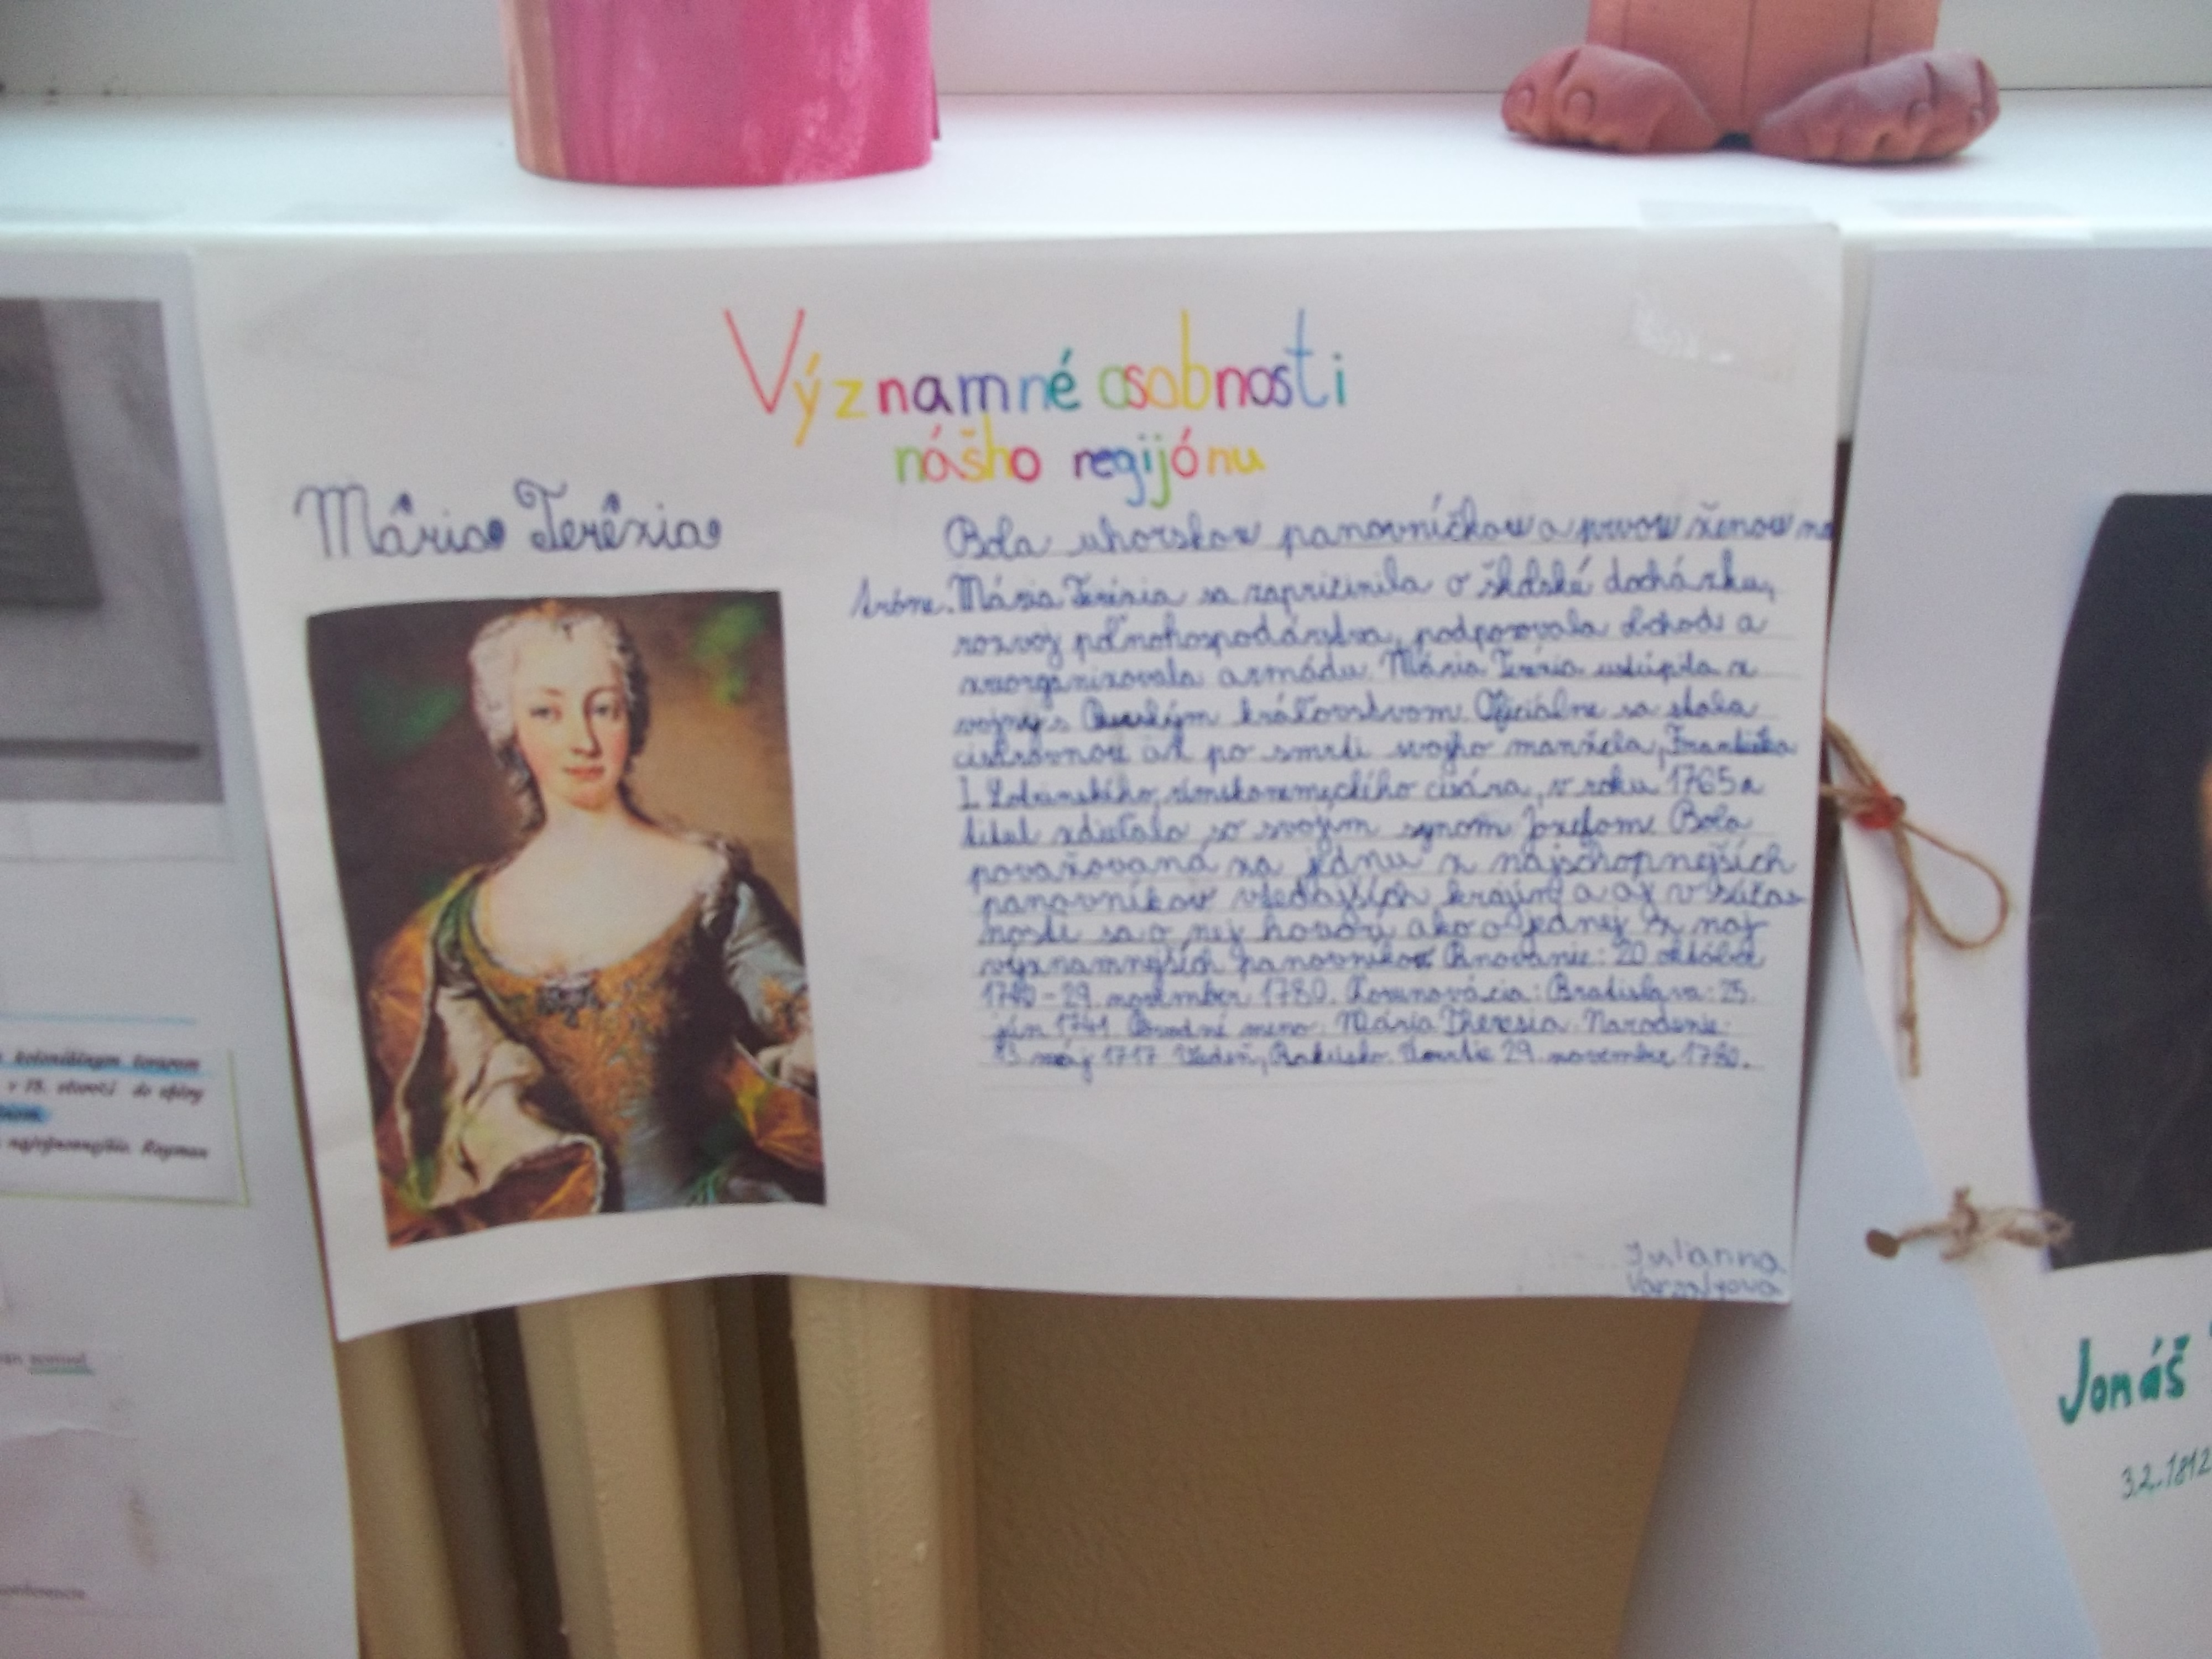 Významné osobnosti
nášho regijónu
Mária Terézia
Bola uhorskou panovníčkou a prvou ženou na
tróne. Mária Terézia sa zapričinila o školské dochádzku,
rozvoj poľnohospodárstva, podporovala obchod a
zreorganizovala armádu. Mária Terézia ustúpila z
vojny s Pruským kráľovstvom. Oficiálne sa stala
cisárovnou až po smrti svojho manžela, Františka
I. Lotrinského, rímskonemeckého cisára, v roku 1765 a
titul zdieľala so svojim synom Jozefom. Bola
považovaná za jednu z najschopnejších
panovníkov vtedajších krajín a aj v súčas
nosti sa o nej hovorí ako o jednej z naj
významnejších panovníkov. Panovanie: 20 október
1740-29. november 1780. Korunovácia: Bratislava: 25.
jún 1741. Rodné meno: Mária Theresia. Narodenie:
13 máj 1717 Viedeň, Rakúsko. Úmrtie 29. novembre 1780.
Julianna
koloniálnym tovarom
v 18. storočí do
Rayman
Jonáš
3.2.1812